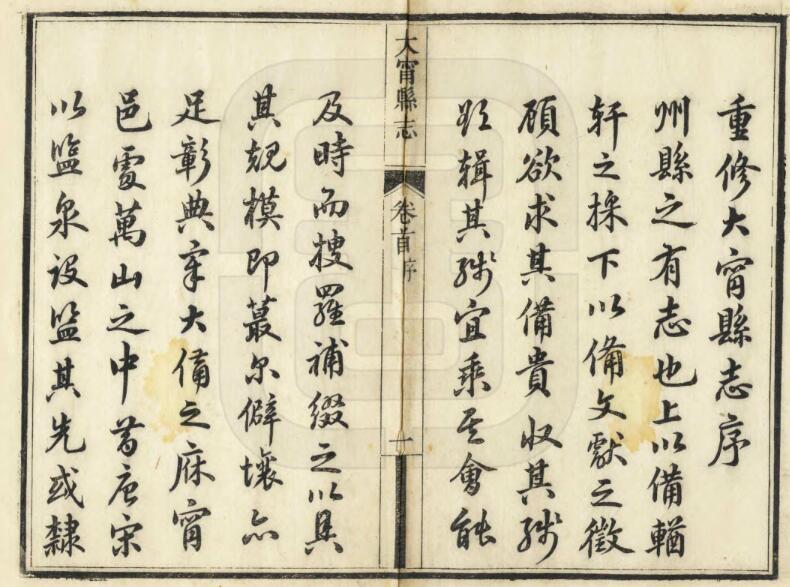 重修大甯縣志序
州縣之有志也上以備輶
軒之採下以備文獻之徵
顧欲求其備貴收其殘
輯其殘宜乘其會能
大甯縣志
卷首
序
一
及時而搜羅補綴之以具
其規模即蕞尔僻壤亦
足彰典章大備之庥甯
邑處萬山之中昔唐宋
以監泉設監其先或隸